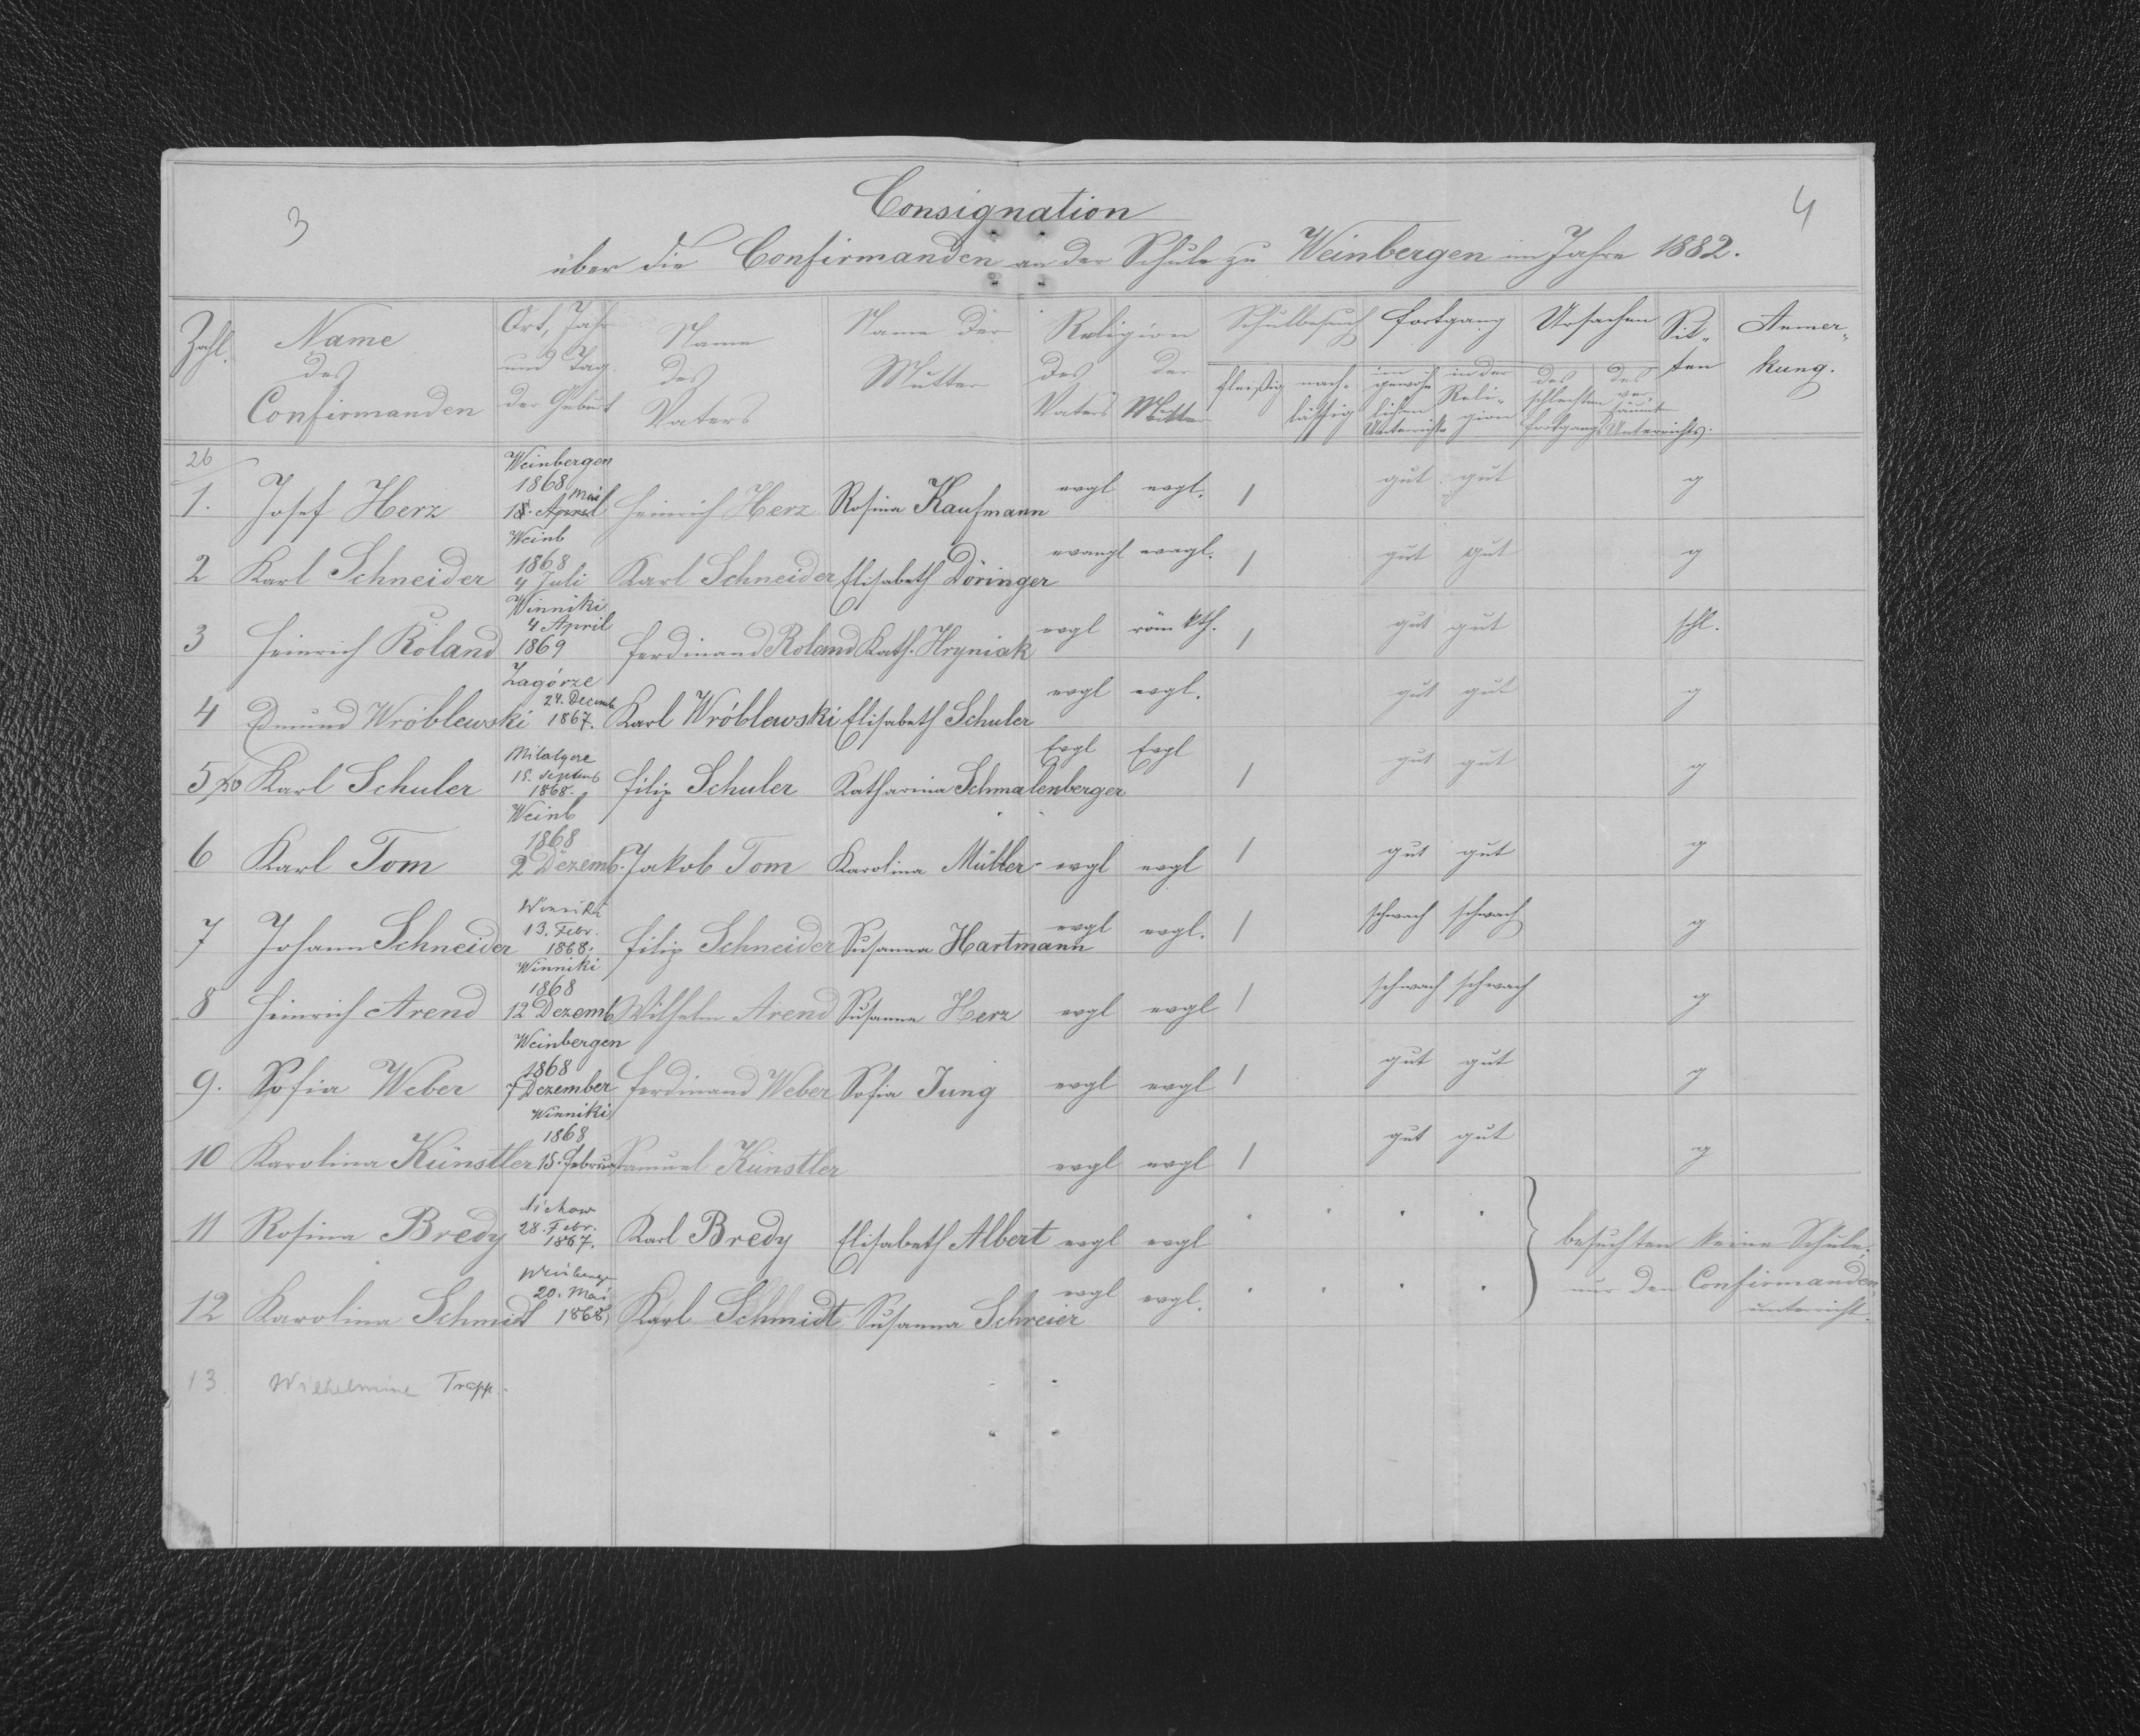 3
Consignation
4
über die Confirmanden an der Schule zu Weinbergen im Jahre 1882.
Zahl. Name des Confirmanden Ort, Jahr und Tag der Geburt Name des Vaters Name der Mutter Religion des Vaters der Mutter Schulbesuch fleißig nach-lässig Fortgang im gewöhn-lichen Unterricht in der Reli-gion Ursachen des schlechten Fortgangs des ver-säumten Unterrichts. Sit-ten Anmer-kung.
26
1. Josef Herz Weinbergen 1868 18. April Mai Heinrich Herz Rosina Kaufmann evgl evgl. / gut gut g
2 Karl Schneider Weinb 1868 4 Juli Karl Schneider Elisabeth Döringer evangl evagl. / gut gut g
3 Heinrich Roland Winniki 4 April 1869 Ferdinand Roland Kath. Hryniak evgl röm kth. / gut gut schl.
4 Edmund Wróblewski Zagórze 24. Decemb 1867. Karl Wróblewski Elisabeth Schuler evgl evgl. gut gut g
5 Karl Schuler 15. Septemb 1868. Filip Schuler Katharina Schmalenberger Evgl Evgl / gut gut g
6 Karl Tom Weinb 1868 2 Dezemb. Jakob Tom Karolina Müller evgl evgl / gut gut g
7 Johann Schneider Winniki 13. Febr. 1868. Filip Schneider Susanna Hartmann evgl evgl. / schwach schwach g
8 Heinrich Arend Winniki 1868 12 Dezemb Wilhelm Arend Susanna Herz evgl evgl / schwach schwach g
9. Sofia Weber Weinbergen 1868 7 Dezember Ferdinand Weber Sofia Jung evgl evgl / gut gut g
10 Karolina Künstler Winniki 1868 15. Februar Samuel Künstler evgl evgl / gut gut g
11 Rosina Bredy 28. Febr. 1867. Karl Bredy Elisabeth Albert evgl evgl . . . . besuchten keine Schule,
12 Karolina Schmidt Weinbergen 20. Mai 1868, Karl Schmidt Susanna Schreier evgl evgl. . . . . nur den Confirmanden-
unterricht.
13 Wilhelmine Trapp.